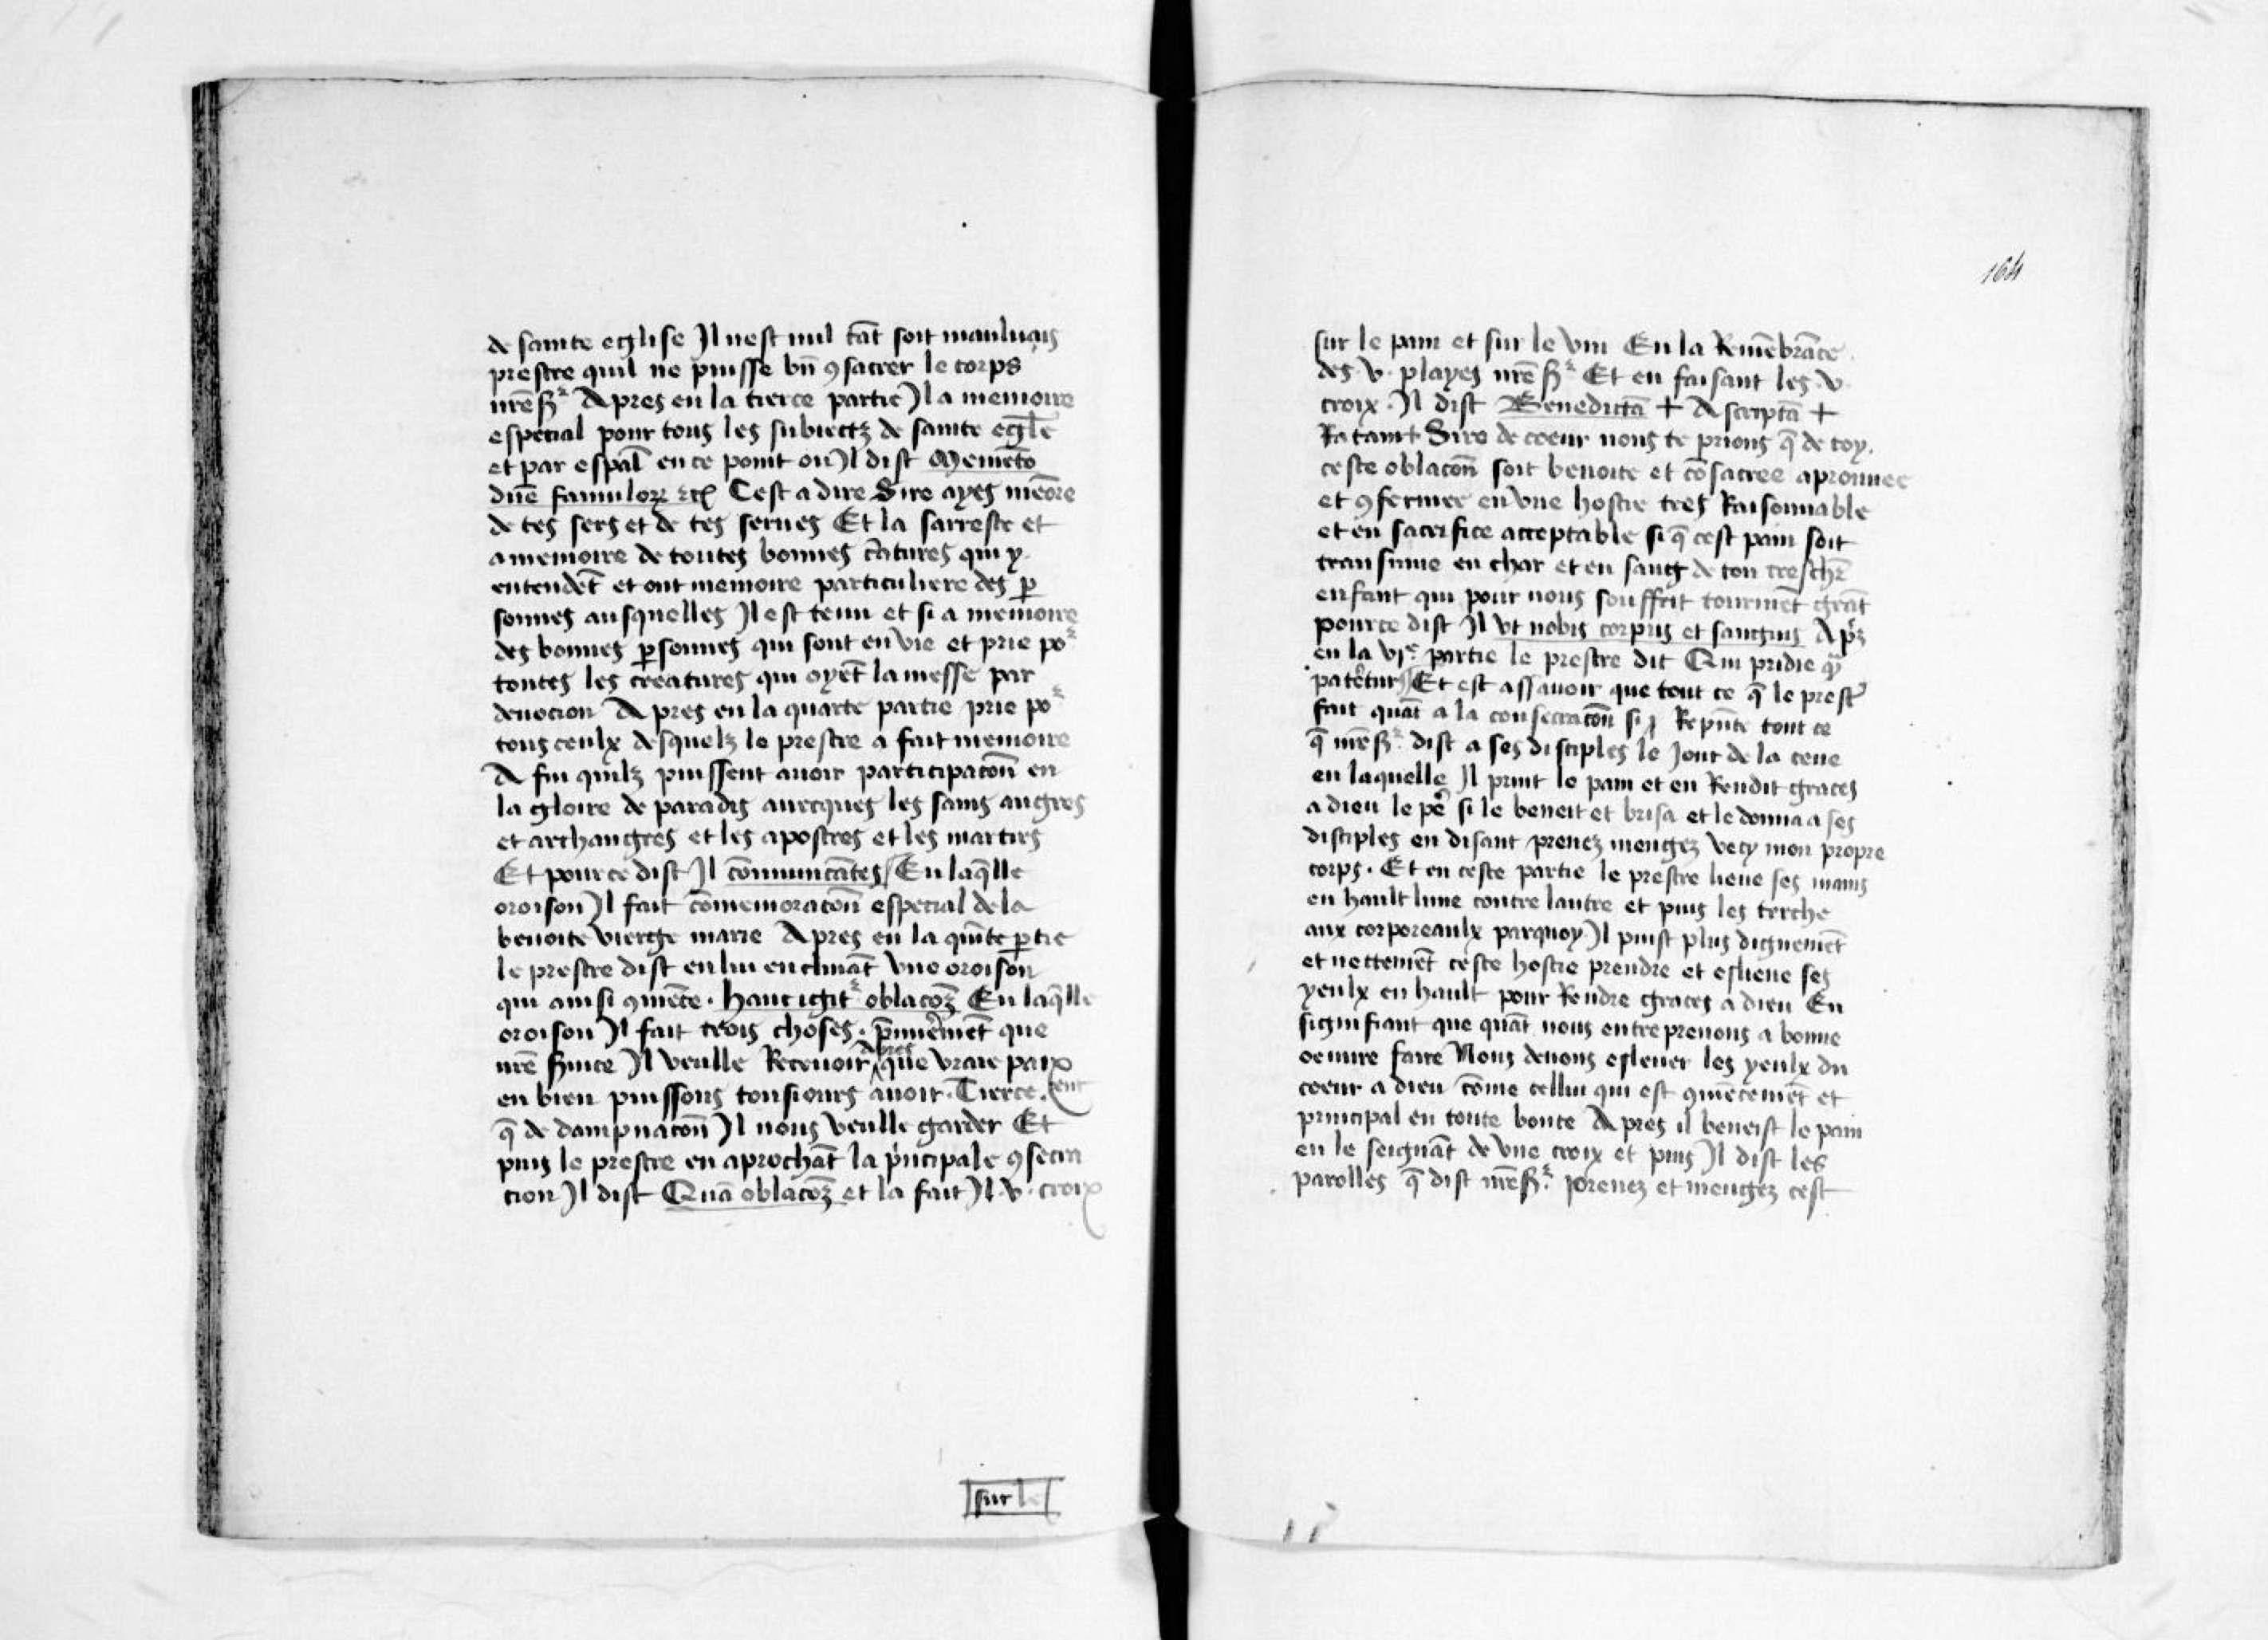 de sainte eglise Il nest nul tāt soit mauluais
prestre quil ne puisse bn̄ ꝯsacrer le corps
nr̄e sʳ Apres en la tierce partie Il a memoire
especial pour tous les subiectz de sainte egl̄e
et par esp̄al en ce point ou Il dist Memēto
dn̄e famuloꝝ etc̄ Cest a dire Sire ayes mēore
de tes sers et de tes serues Et la sarreste et
a memoire de toutes bonnes c̄atures qui y
entendēt et ont memoire particuliere des ꝑ
sonnes ausquelles Il est tenu et si a memoire
des bonnes ꝑsonnes qui sont en vie et prie poʳ
toutes les creatures qui oyēt la messe par
deuocion Apres en la quarte partie prie poʳ
tous ceulx desquelz le prestre a fait memoire
A fin quilz puissent auoir participacōn en
la gloire de paradis auecques les sains angres
et archangres et les apostres et les martirs
Et pour ce dist Il cōmunicātes En laq̄lle
oroison Il fait cōmemoracōn especial de la
benoite vierge marie Apres en la quīte ꝑtie
le prestre dist en lui enclināt vne oroison
qui ainsi ꝯmēce . hanc igitʳ oblacōꝫ En laq̄lle
oroison Il fait trois choses . p̄mieremēt que
nr̄e sʳ mice Il veulle Receuoir apres que vraie paix
en bien puissons tousiours auoir . Tierce.ment
q̄ de dampnacōn Il nous veulle garder Et
puis le prestre en aprochāt la pⁱncipale ꝯsecra
tion Il dist Quā oblacōꝫ et la fait Il .v. croix
sur le
164
sur le pain et sur le vin En la Remēbrāce
des .v. playes nr̄e sʳ Et en faisant les .v.
croix . Il dist Benedictā + Ascriptā +
Ratam + Sire de coeur nous te prions q̄ de toy
ceste oblacōn soit benoite et cōsacree aprouuee
et ꝯfermee en vne hostie tres Raisonnable
et en sacrifice acceptable si q̄ cest pain soit
transmue en char et en sang de ton treschr̄
enfant qui pour nous souffrit tourmēt grāt
pource dist Il vt nobis corpus et sanguis Apꝰz
en la vjᵉ partie le prestre dit Qui pridie qᵃ
paterētur Et est assauoir que tout ce q̄ le prestʳ
fait quāt a la consecracōn si Repn̄te tout ce
q̄ nr̄e sʳ dist a ses disciples le Jour de la cene
en laquelle Il print le pain et en Rendit graces
a dieu le pēˢ si le beneit et brisa et le donna a ses
disciples en disant prenez mengez vecy mon propre
corps . Et en ceste partie le prestre lieue ses mains
en hault lune contre lautre et puis les terche
aux corporeaulx parquoy Il puist plus dignemēt
et nettemēt ceste hostie prendre et eslieue ses
yeulx en hault pour Rendre graces a dieu En
signifiant que quāt nous entreprenons a bonne
oeuure faire Nous deuons esleuer les yeulx du
coeur a dieu cōme cellui qui est ꝯmēcemēt et
principal en toute bonte Apres il beneist le pain
en le seignāt de vne croix et puis Il dist les
parolles q̄ dist nr̄e sʳ . prenez et mengez cest